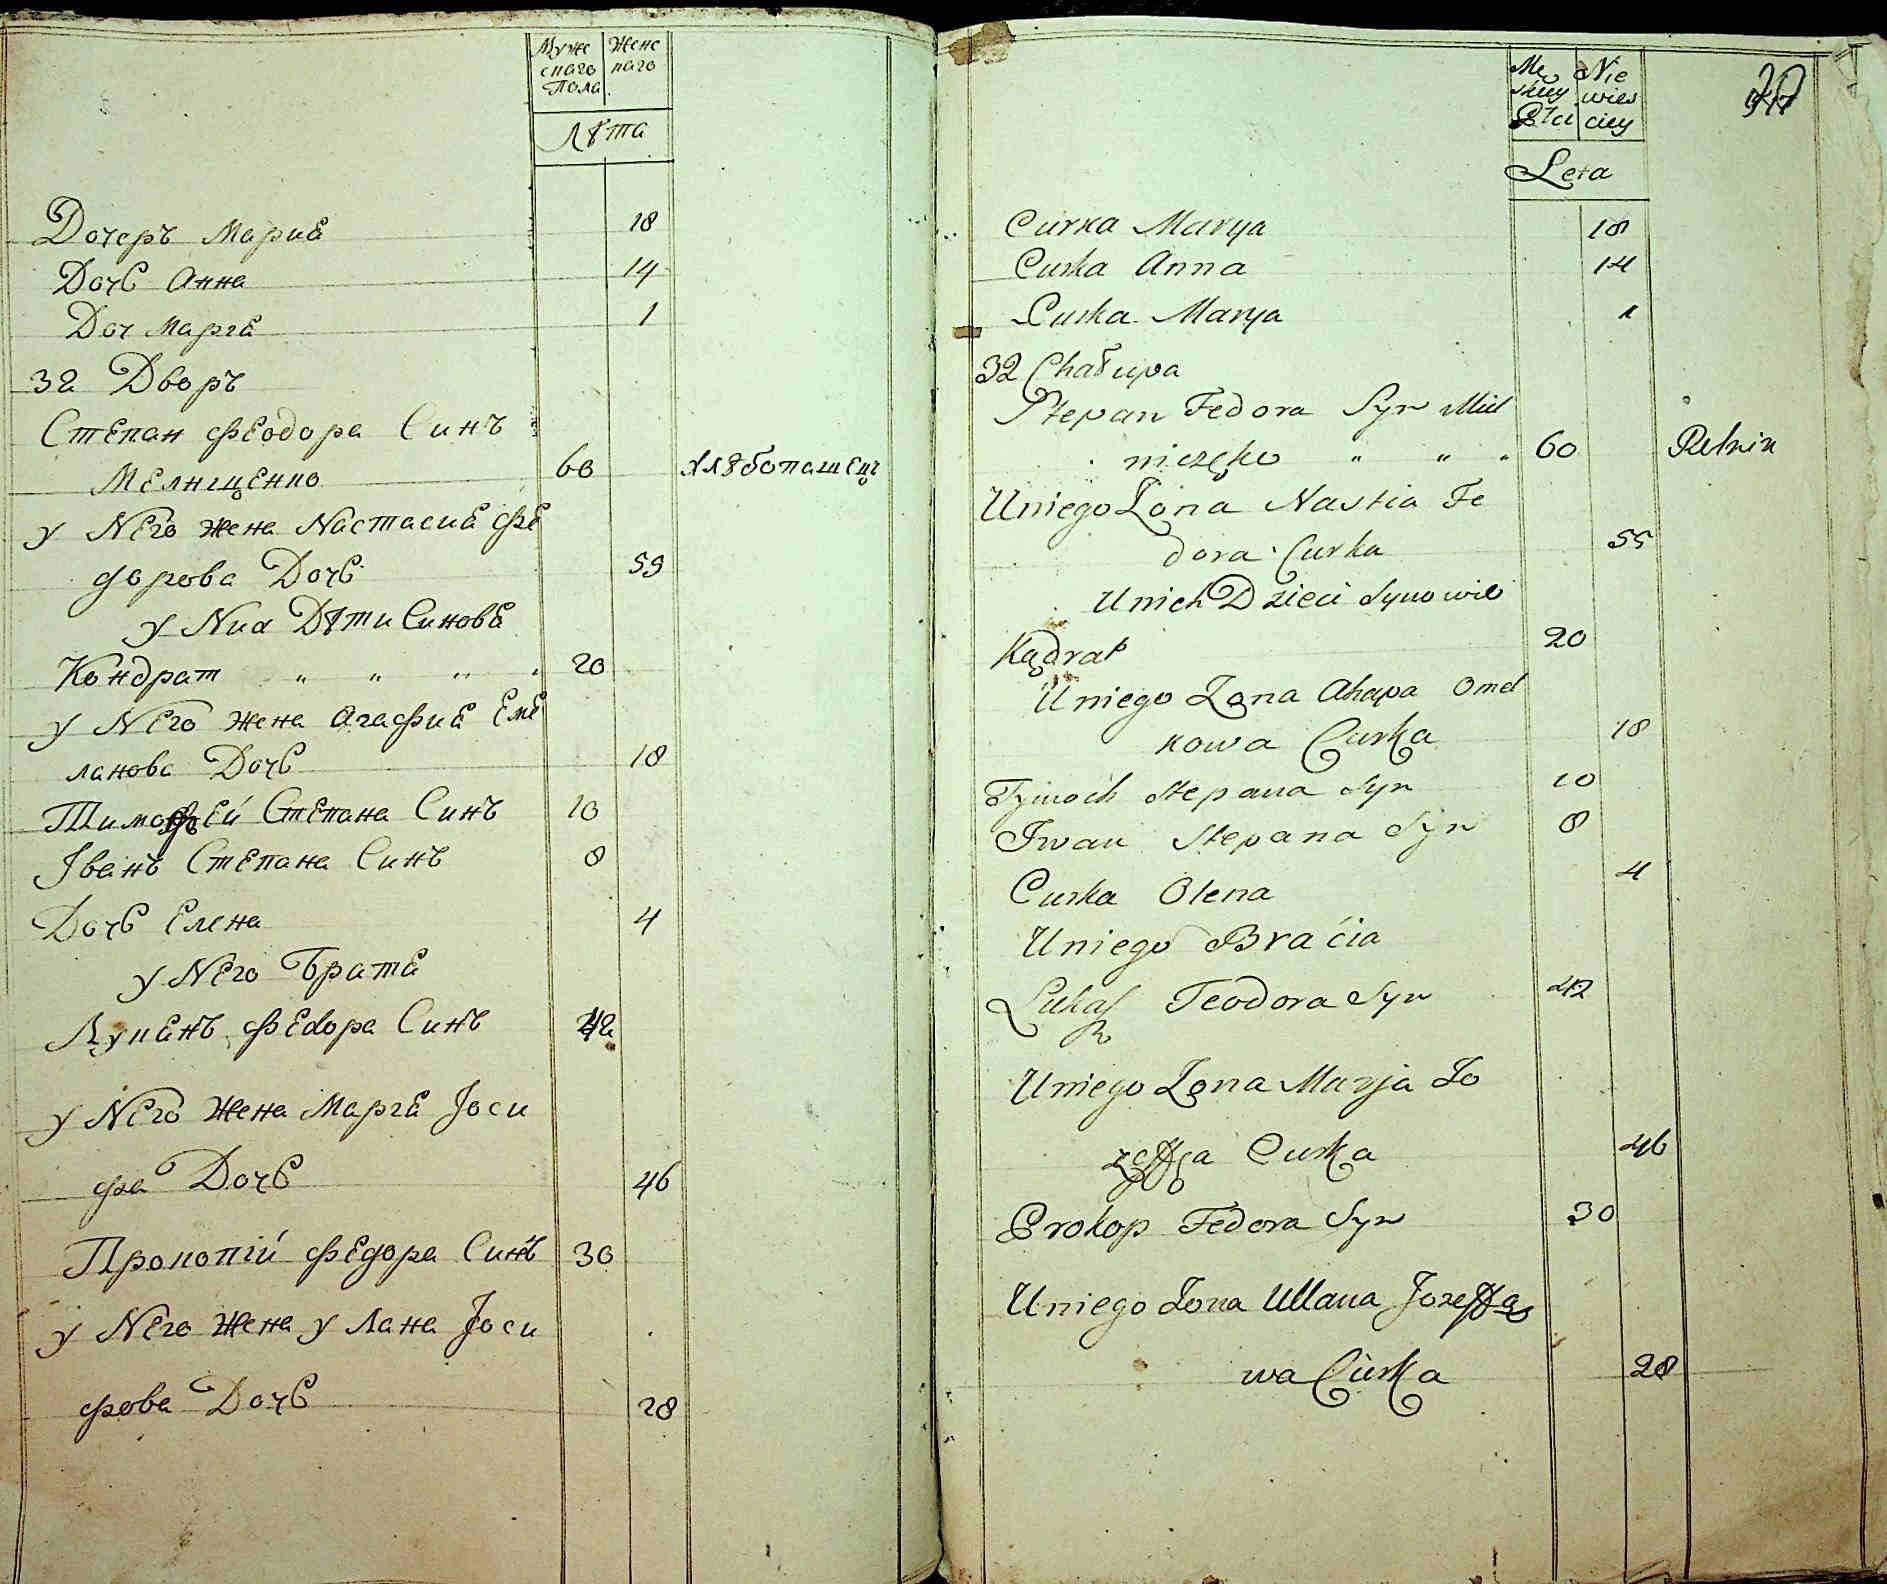 Муже Женс
снаго наго
Пола
Лѣта
Дочеръ Мариꙗ 18
Дочь Анна 14
Доч Маргꙗ 1
32 Дворъ
Степан Феодора Синъ
Мелнѣценко 60 Хлѣбопашецъ
у Него жена Настасиꙗ Фе
дорова Дочь 59
у Них Дѣти Синовꙗ
Кондрат „ „ „ „ 20
у Него жена Агафиꙗ Еме
ланова Дочь 18
Тимофей Степана Синъ 10
Іванъ Степана Синъ 8
Дочь Елена 4
у Него Братꙗ
Лукꙗнъ Федора Синъ 42
у Него Жена Маргꙗ Іоси
фа Дочь 46
Прокопій Федора Синъ 30
у Него Жена у Лана Іоси
фова Дочь 28
Mę Nie
skiey wies
Płci ciey
Leta
Curka Marya 18
Curka Anna 14
Curka Marya 1
32 Chałupa
Stepan Fedora Syn Miel
niczęko „ „ „ 60 Rolnik
Uniego Żona Nastia Fe
dora Curka 55
Unich Dzieci Synowie
Kądrat 20
Uniego Żona Ahapa Omel
kowa Curka 18
Tymoch Stepana Syn 10
Iwan Stepana Syn 8
Curka Olena 4
Uniego Braćia
Lukas Teodora Syn 42
Uniego Żona Marja Jo
zeffa Curka 46
Prokop Fedora Syn 30
Uniego Żona Ullana Jozeffo
wa Curka 28